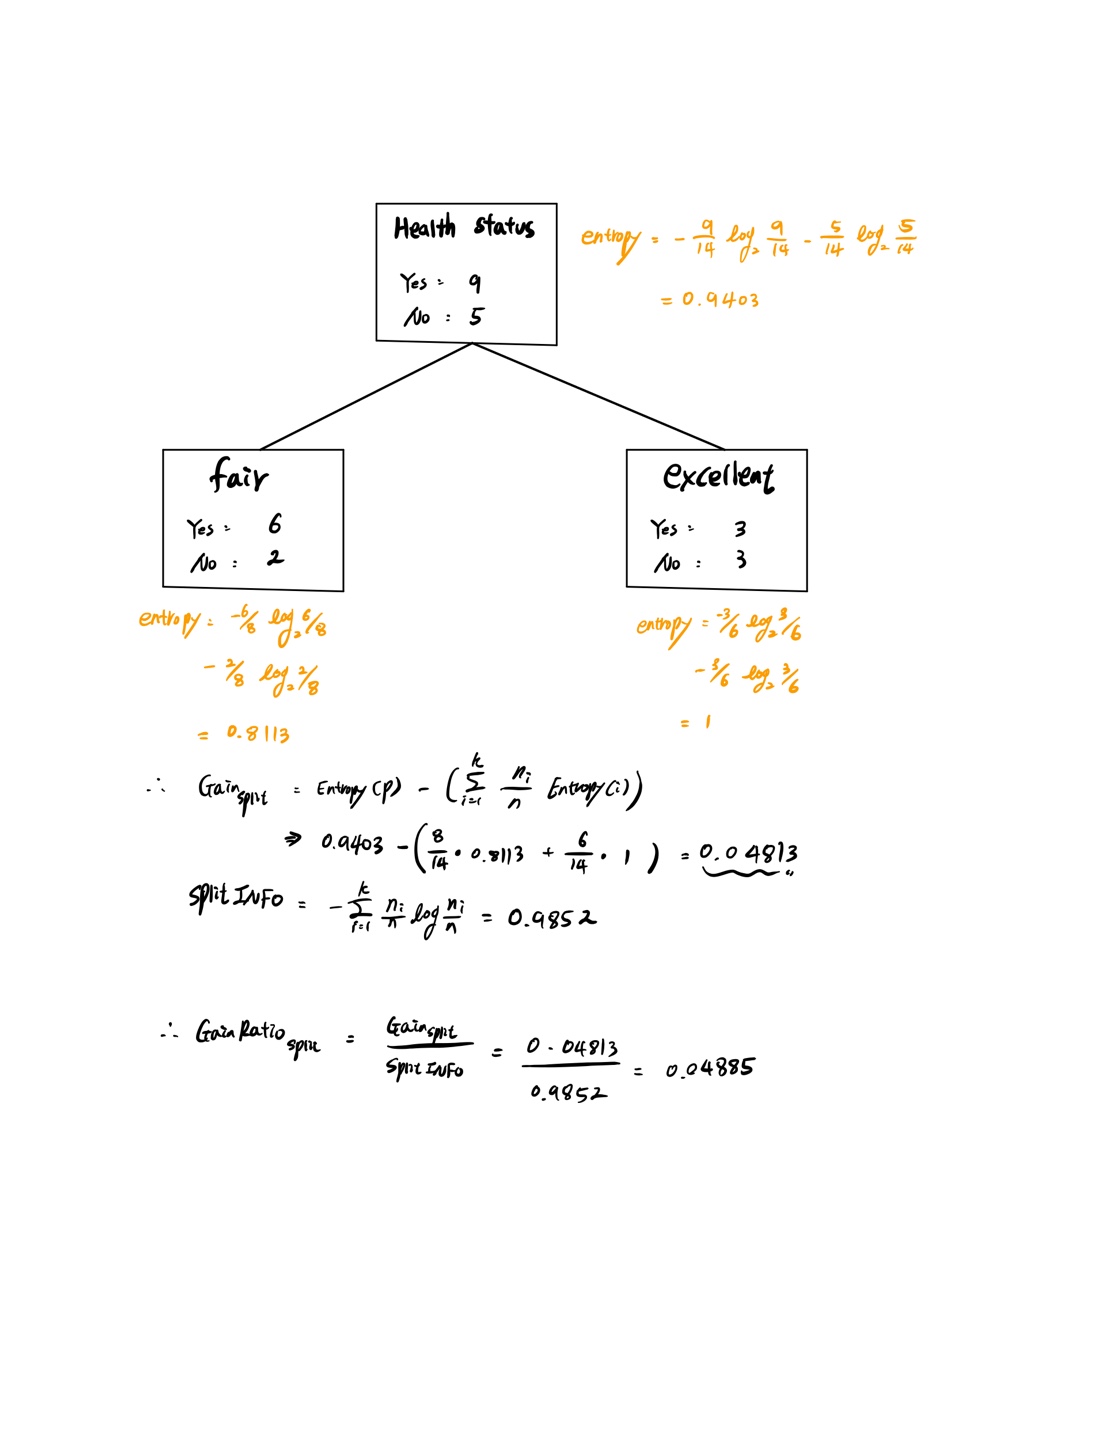 Health status
Yes : 9
No : 5
entropy = - 9/14 log₂ 9/14 - 5/14 log₂ 5/14
= 0.9403
fair
Yes : 6
No : 2
excellent
Yes : 3
No : 3
entropy = -6/8 log₂ 6/8
- 2/8 log₂ 2/8
= 0.8113
entropy = -3/6 log₂ 3/6
- 3/6 log₂ 3/6
= 1
∴ Gain split = Entropy(p) - (Σ i=1 k ni/n Entropy(i))
⇒ 0.9403 - (8/14 • 0.8113 + 6/14 • 1) = 0.04813
Split INFO = - Σ i=1 k ni/n log ni/n = 0.9852
∴ Gain Ratio split = Gain split / Split INFO = 0.04813 / 0.9852 = 0.04885